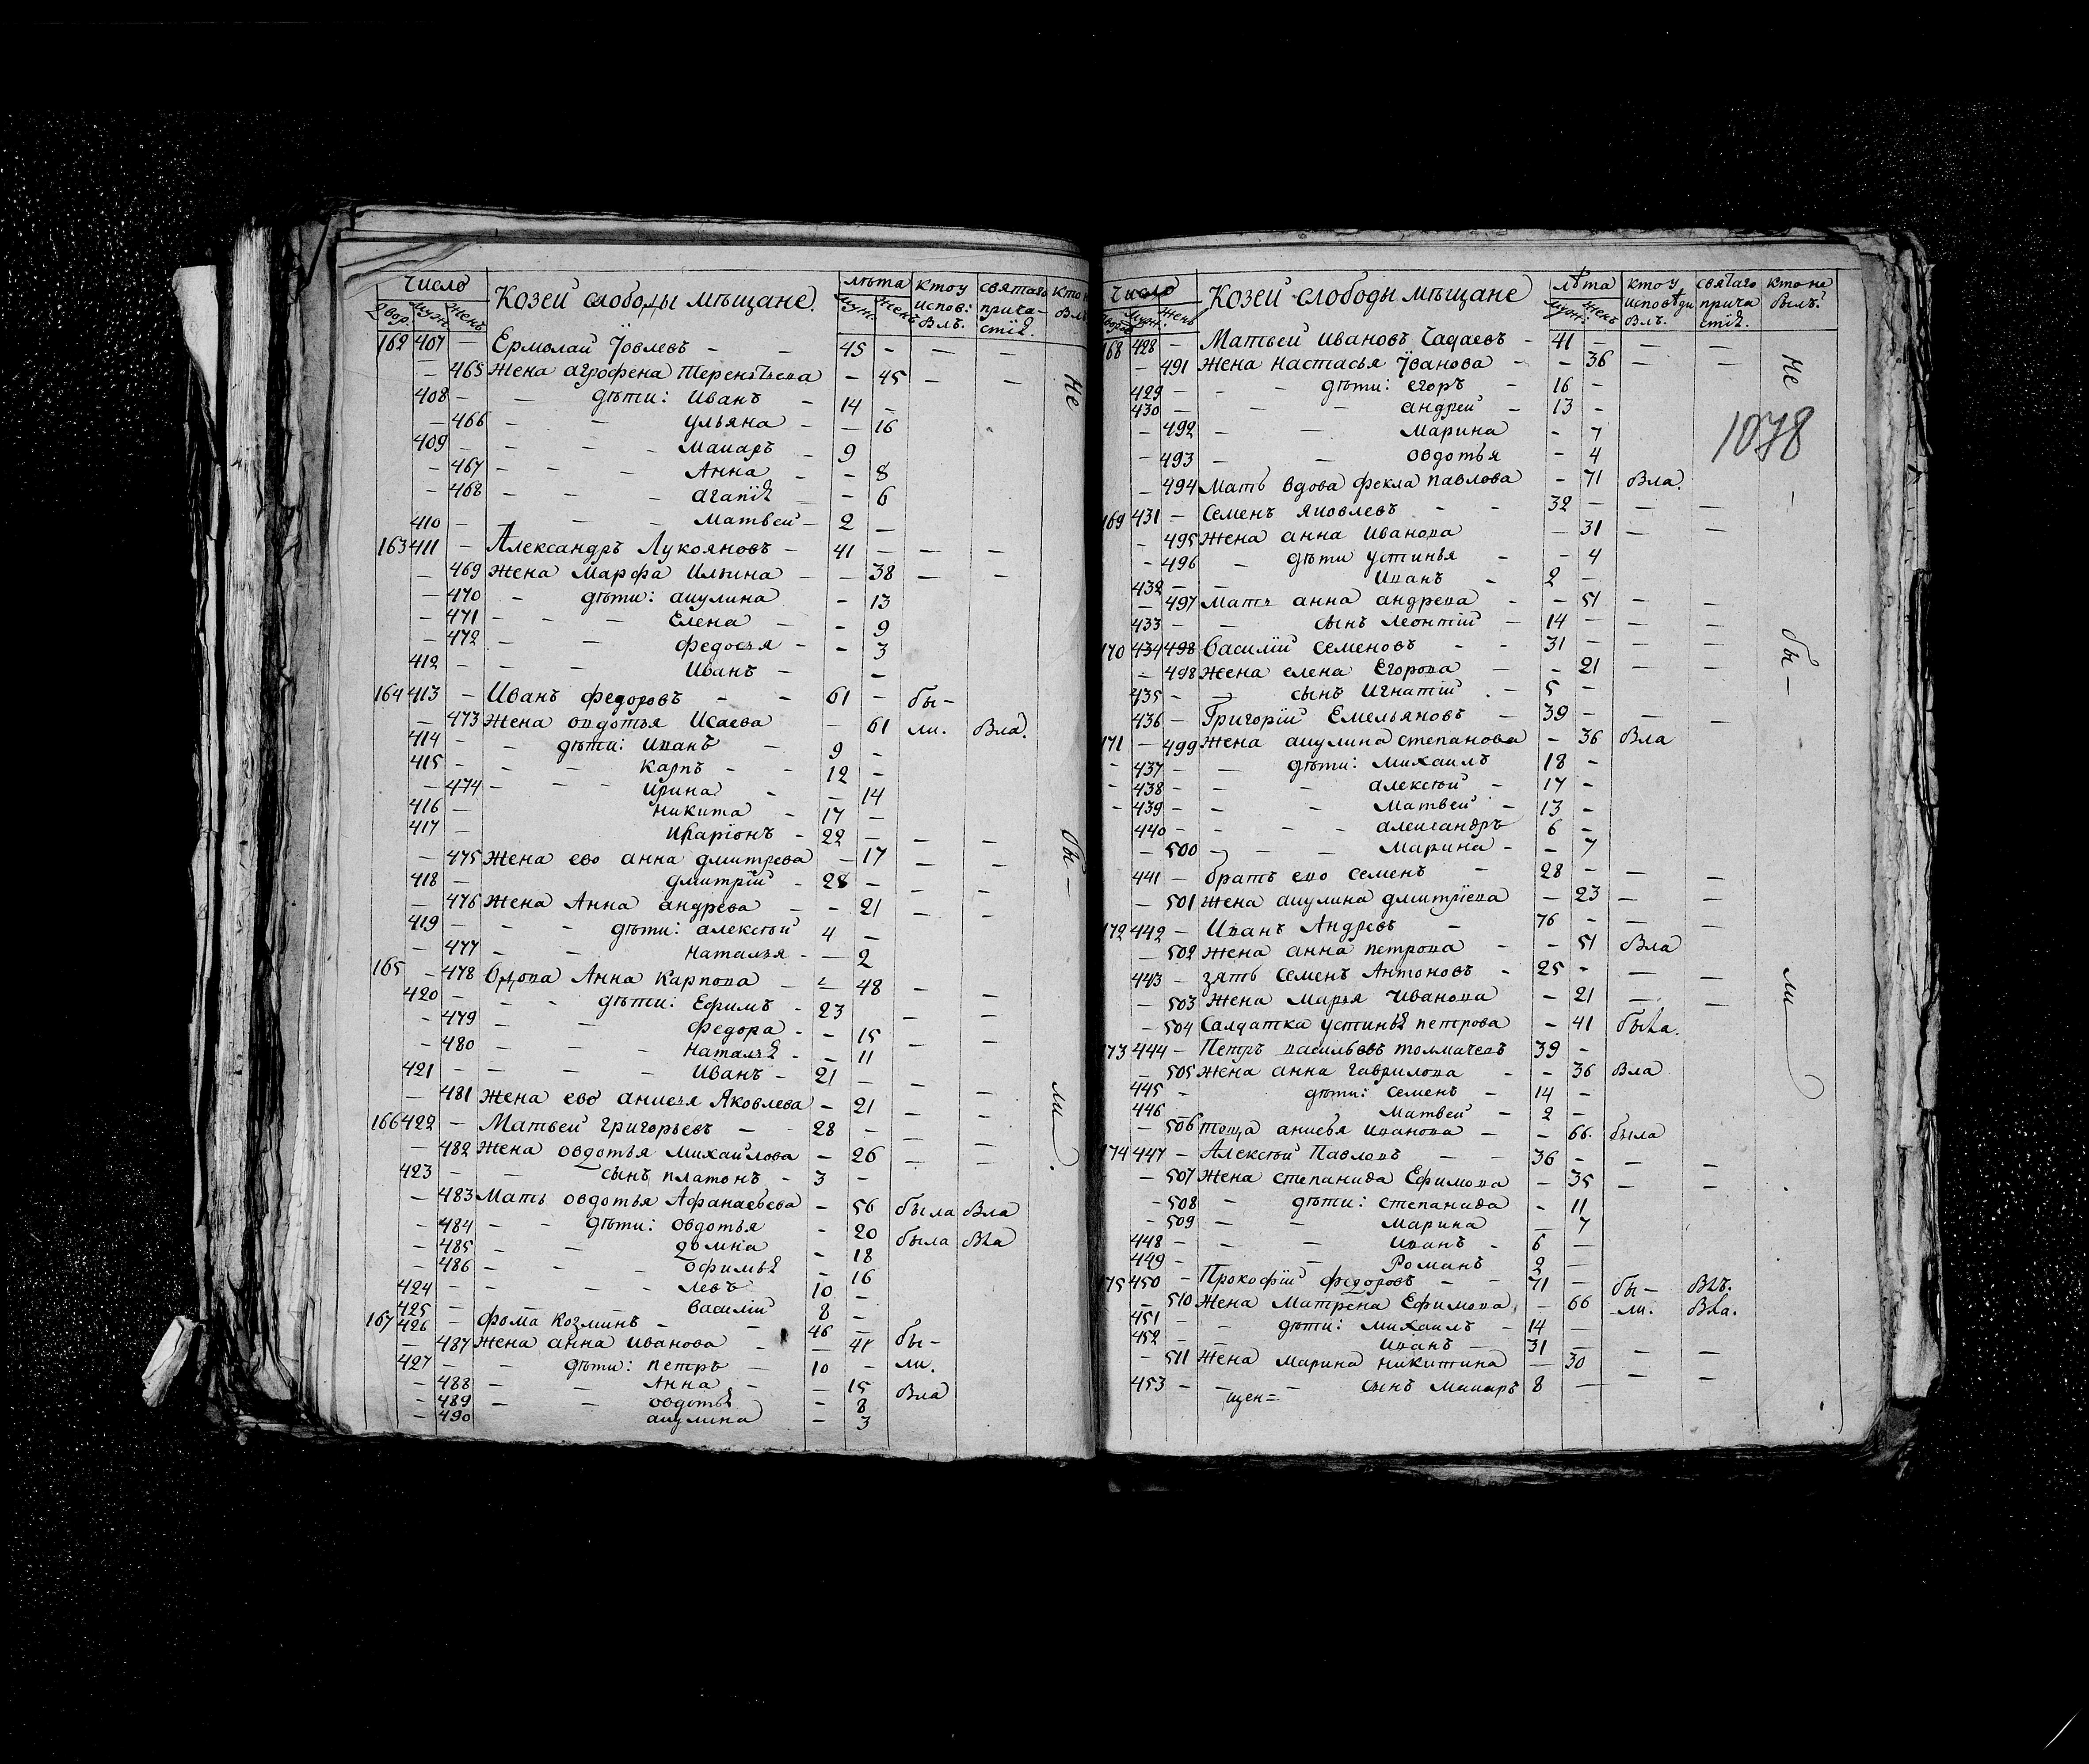 Число Козей слободы мѣщане. лѣта кто у святаго
двор. муж. женъ муж. женъ испов: прича-
былъ. стїя.
162 407 — Ермолай Їовлевъ — — 45 — — —
— 465 Жена агрофена — 45 — —
408 — — дѣти: Иванъ — 14 —
— 466 — — ульяна — — 16
409 — — — Макаръ — 9
— 467 — — — Анна — — 8
— 468 — — — агапїя — — 6
410 — — — Матвей — 2 —
163 411 — Александръ Лукояновъ — 41 — — —
— 469 Жена Марфа Ильина — — 38 — —
— 470 — дѣти: акулина — 13
— 471 — — — Елена — — 9
— 472 — федосья — — 3
412 — — — Иванъ — —
164 413 — Иванъ федоровъ — — 61 — бы-
— 473 Жена овдотья Исаева — 61 ли. Была.
414 — — дѣти: Иванъ — 9 —
415 — — — карпъ — — 12 —
— 474 — — — Ирина — — 14
416 — никита — 17 —
417 — Иларїонъ — 22 — — —
— 475 Жена ево анна дмитрева — 17 — —
418 — дмитрїй — 28 — — —
— 476 Жена Анна андрева — — 21 — —
419 — — — дѣти: алексѣй 4 —
— 477 — — наталья — — 2
165 — 478 Вдова Анна Карпова — — 48 — —
420 — — — дѣти: Ефимъ — 23 — —
— 479 — — федора — — 15 — —
— 480 — — — наталья — — 11
421 — — — — Иванъ — 21 — — —
— 481 Жена ево анисья Яковлева — 21 — —
166 422 — Матвей григорьевъ — — 28 — — —
— 482 Жена овдотья михайлова — 26 — —
423 — — сынъ платонъ — 3 —
— 483 Мать овдотья Афанасьева — 56 была Была
— 484 — — дѣти: овдотья — 20 была Была
— 485 — — домна — 18
— 486 — — — Офимья — 16
424 — — — — Левъ 10 —
425 — — — василїй 8 —
167 426 — фома Козминъ — — 46 —
— 487 Жена анна иванова — — 41 бы-
427 — — дѣти: петръ — 10 — ли.
— 488 — — Анна — — 15 Была
— 489 — — овдотья — 8
— 490 акулина — 3
не
бы —
ли.
Число Козей слободы мѣщане лѣта кто у святаго кто не
муж. женъ муж: женъ исповѣди прича былъ.
былъ. стїя.
168 428 — Матвей Ивановъ Чадаевъ — 41 — — —
— 491 Жена настасья Їванова — — 36 — —
429 — — — дѣти: егоръ — 16 —
430 — — — андрей — 13 —
— 492 — — Марина — 7
— 493 — — овдотья — 4
— 494 Мать вдова фекла павлова — 71 Была.
169 431 — Семенъ Яковлевъ — — 32 — — —
— 495 Жена анна Иванова — 31 — —
— 496 — дѣти устинья — — 4
432 — — Иванъ — 2 —
— 497 Мать анна андрева — — 51 — —
433 — — сынъ леонтїй — 14 — — —
170 434 498 Василїй семеновъ — — 31 — — —
— 498 Жена елена Егорова — — 21 — —
435 — — сынъ Игнатїй — 5 —
436 — Григорїй Емельяновъ — 39 — — —
171 — 499 Жена акулина степанова — 36 Была
— 437 — — дѣти: михаилъ 18 —
— 438 — — — алексѣй — 17 —
— 439 — — — Матвей — 13 —
440 — — — — александръ 6 —
— 500 — — — Марина — — 7
441 — братъ ево семенъ — 28 — — —
— 501 Жена акулина дмитрїева — 23 — —
172 442 — Иванъ Андревъ — 76 — — —
— 502 Жена анна петрова — — 51 Была
443 — зять семенъ Антоновъ — 25 — — —
— 503 Жена Марья Иванова — 21 — —
— 504 Салдатка устинья петрова — 41 была.
173 444 — Петръ васильевъ толмачевъ 39 —
— 505 Жена анна гаврилова — — 36 Была
445 — дѣти: семенъ — 14 —
446 — Матвей — 2 —
— 506 теща анисья иванова — — 66. была
174 447 — Алексѣй Павловъ — — 36 — — —
— 507 Жена степанида Ефимова — 35 — —
— 508 — дѣти: степанида — 11
— 509 — — Марина — 7
448 — — — Иванъ — 6 —
449 — — — Романъ 2 —
175 450 — Прокофїй федоровъ — — 71 — бы — Былъ.
— 510 Жена Матрена Ефимова — 66 ли. Была.
451 — — дѣти: михаилъ — 14 —
452 — — Иванъ — 31 — — —
— 511 Жена марина никитина — 30 — —
453 — — — сынъ макаръ 8 —
щен=
не
1078
бы —
ли